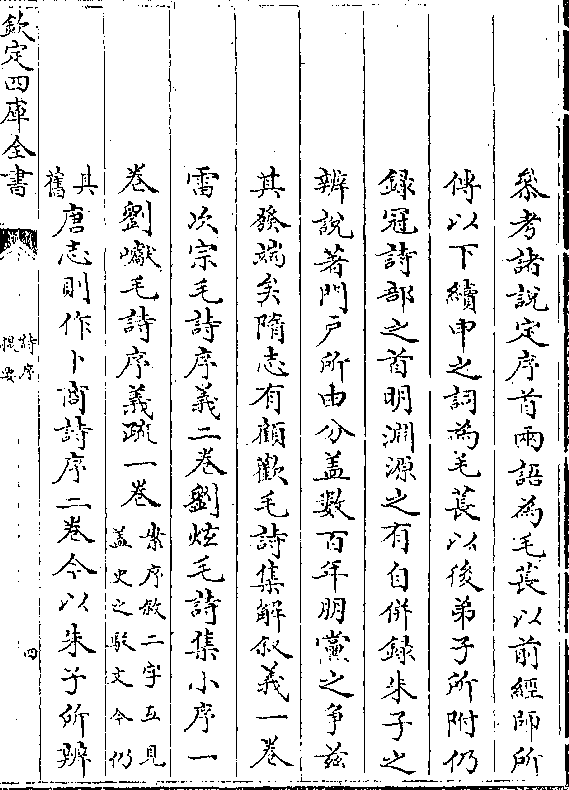 叅考諸說定序首兩語為毛萇以前經師所
傳以下續申之詞為毛萇以後弟子所附仍
録冠詩部之首明淵源之有自併録朱子之
辨說著門戸所由分盖數百年朋黨之争兹
其發端矣隋志有顧歡毛詩集解叙義一卷
雷次宗毛詩序義二卷劉炫毛詩集小序一
卷劉巘毛詩序義疏一卷
案序叙二字互見
盖史之駁文今仍
其
舊
唐志則作卜商詩序二卷今以朱子所辨
欽定四庫全書
詩序
提要
四